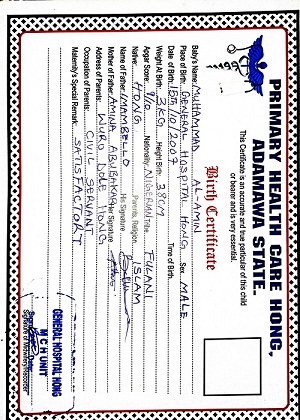 PRIMARY HEALTH CARE HONG,
ADAMAWA STATE.
This Certificate is an accurate and true particular of this child
or bearer and is very essential
Birth Certificate
Baby's Name: MUHAMMAD AL-AMIN
Place of Birth: GENERAL HOSPITAL HONG Sex MALE
Date of Birth: 18th/10/2007 Time of Birth
Weight At Birth 3KG Height Birth 38CM
Apgar Score: 9/10 Nationality NIGERIAN Tribe FULANI
Native: HONG Parents Religion ISLAM
Name of Father: IMAM BELLO His Signature
Mother of Father: AMINA ABUBAKAR Her Signature
Address of Parents: WURO DOLE HONG
Occupation of Parents: CIVIL SERVANT
Maternity's Special Remark: SATISFACTORY
GENERAL HOSPITAL HONG
M C H UNIT
Signature of Midwifery/Recorder